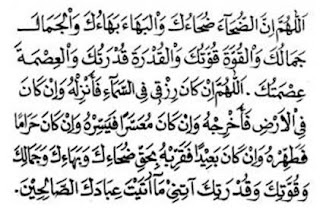 اَللّٰهُمَّ اِنَّ الضُّحَآءَ ضُحَاءُكَ وَالْبَهَاءَ بَهَاءُكَ وَالْجَمَالَ
جَمَالُكَ وَالْقُوَّةَ قُوَّتُكَ وَالْقُدْرَةَ قُدْرَتُكَ وَالْعِصْمَةَ
عِصْمَتُكَ. اَللّٰهُمَّ اِنْ كَانَ رِزْقِى فِى السَّمَآءِ فَأَنْزِلْهُ وَاِنْ كَانَ
فِى اْلاَرْضِ فَأَخْرِجْهُ وَاِنْ كَانَ مُعَسَّرًا فَيَسِّرْهُ وَاِنْ كَانَ حَرَامًا
فَطَهِّرْهُ وَاِنْ كَانَ بَعِيْدًا فَقَرِّبْهُ بِحَقِّ ضُحَاءِكَ وَبَهَاءِكَ وَجَمَالِكَ
وَقُوَّتِكَ وَقُدْرَتِكَ آتِنِىْ مَآاَتَيْتَ عِبَادَكَ الصَّالِحِيْنَ.